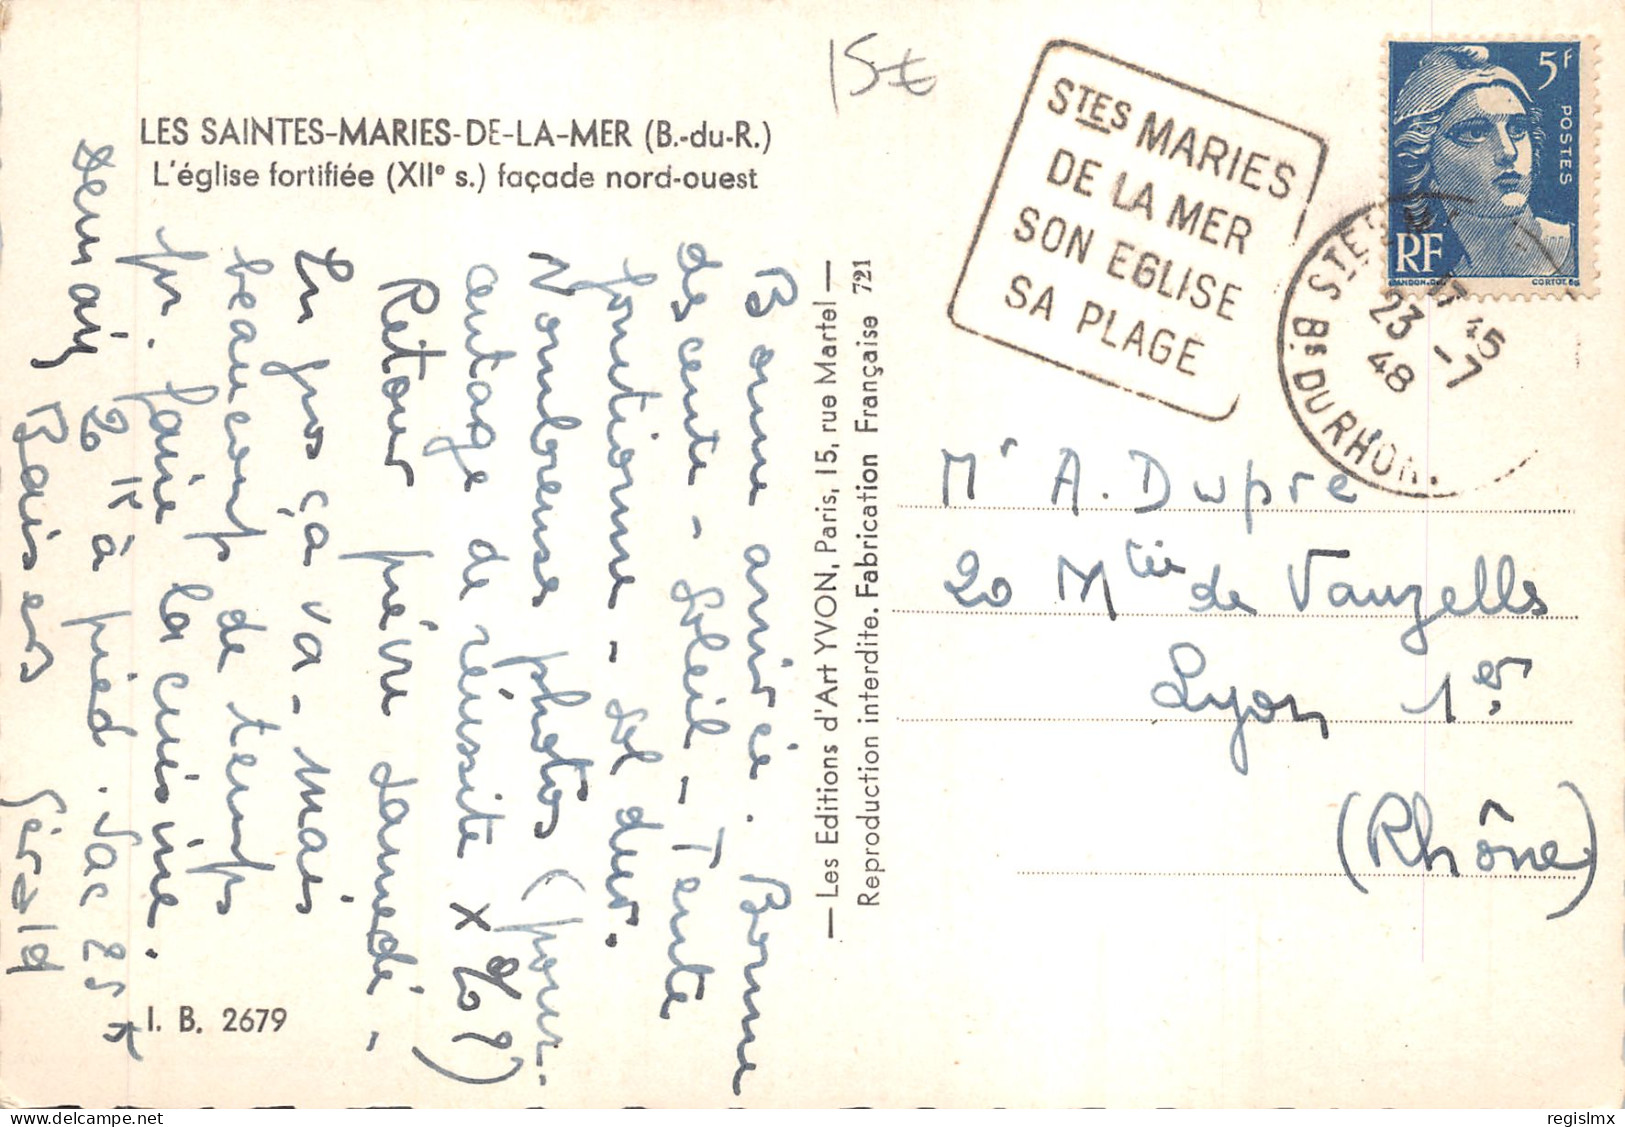 LES SAINTES-MARIES-DE-LA-MER (B.-du-R.)
L'église fortifiée (XIIe s.) façade nord-ouest
Bonne arrivée. Bonne
descente - Soleil - Tente
fonctionne - Sol dur.
Nombreuses photos (pour-
centage de réussite x % ?)
Retour prévu samedi -
En gros ça va - mais
beaucoup de temps
pr. faire la cuisine.
Demain 20 K à pied. Sac 25 K
Baisers Gérald
I. B. 2679
— Les Editions d'Art YVON, Paris, 15, rue Martel —
Reproduction interdite. Fabrication Française 721
15€
STES MARIES
DE LA MER
SON EGLISE
SA PLAGE
5F
POSTES
RF
CORTOT
45
23 - 7
48
BS DU RHON
Mr A. Dupre
20 Mtée de Vauzelles
Lyon 1er
(Rhône)
regislmx